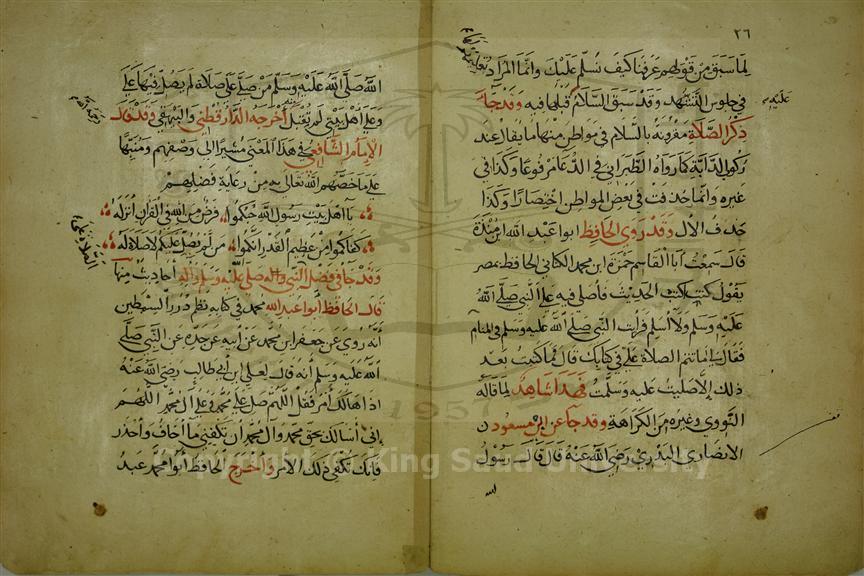 ٢٦
لما سبق من قولهم عرفنا كيف نسلم عليك وانما المراد
في جلوس التشهد وقد سبق السلام قبلها فيه وقد جآء
ذكر الصلاة مقرونة بالسلام في مواطن منها ما يقال عند
ركوب الدابة كما رواه الطبراني في الدعا مرفوعا وكذا في
غيره وانما حذفت في بعض المواطن اختصارا وكذا
حذف الال وقد روي الحافظ ابوا عبد الله ابن مندة
قال سمعت ابا القاسم حمزة ابن محمد الكناني الحافظ بمصر
يقول كنت اكتب الحديث فاصلي فيه على النبي صلى الله
عليه وسلم ولا اسلم فرأيت النبي صلى الله عليه وسلم في المنام
فقال اما تتم الصلاة علي في كتابك قال فما كتبت بعد
ذلك الا صليت عليه وسلمت فهذا شاهد لما قاله
النووي وغيره من الكراهة وقد جآ عن ابن مسعود
الانصاري البدري رضي الله عنه قال قال رسول
الله
عليه
الله صلى الله عليه وسلم من صلى علي صلاة لم يصل فيها علي
وعلى اهل بيتي لم تقبل أخرجه الدارقطني والبيهقي وقد قال
الإمام الشافعي في هذا المعنى مشيرا الى وصفهم ومنبها
على ما خصهم الله تعالى به من رعاية فضلهم
يا اهل بيت رسول الله حبكموا فرض من الله في القران انزله
كفاكموا من عظيم القدر انكموا من لم يصل عليكم لا صلاة له
وقد جآ في فضل النبي واله صلى الله عليه وسلم واله أحاديث منها
قال الحافظ أبوا عبد الله محمد في كتابه نظم درر السمطين
أنه روي عن جعفر ابن محمد عن أبيه عن جده عن النبي صلى
الله عليه وسلم أنه قال لعلي بن أبي طالب رضي الله عنه
اذا هالك أمر فقل اللهم صل على محمد وعلى ال محمد اللهم
إني أسالك بحق محمد وال محمد أن تكفني ما أخاف وأحذر
فإنك تكفى ذلك الامر وأخرج الحافظ أبوا محمد عبد
Copyright © King Saud University
1957